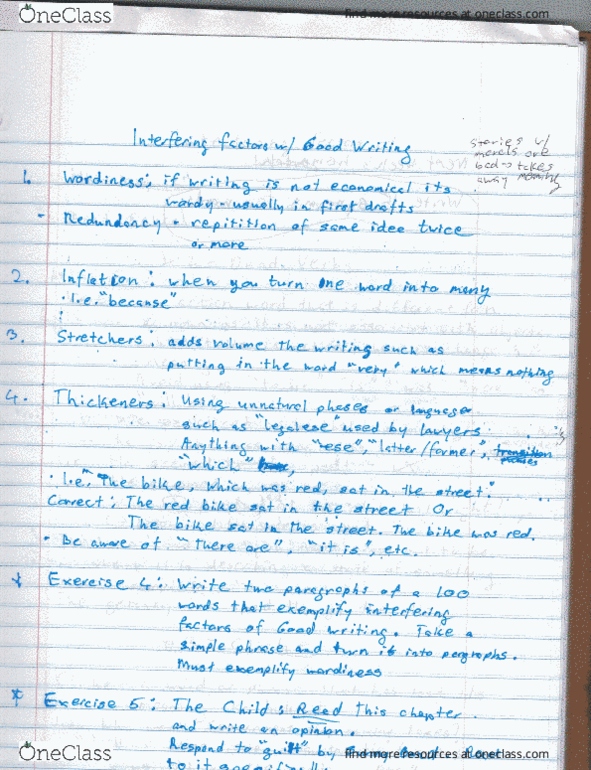 OneClass
find more resources at oneclass.com
Interfering factors w/ Good Writing
stories w/
morals are
bad → takes
away meaning
1. Wordiness; if writing is not economical its
wordy - usually in first drafts
- Redundancy - repitition of same idea twice
or more
2. Inflation: when you turn one word into many
· I.e. "because"
3. Stretchers: adds volume the writing such as
putting in the word "very" which means nothing
4. Thickeners: Using unnatural phases or language
such as "legalese" used by lawyers.
Anything with "-ese", "latter/former", transition
phases
"which"
· I.e. "The bike, which was red, sat in the street."
Correct: The red bike sat in the street Or
The bike sat in the street. The bike was red.
· Be aware of "there are", "it is", etc.
* Exercise 4: Write two paragraphs of a 100
words that exemplify interfering
factors of Good writing. Take a
simple phrase and turn it into pergraphs.
Must exemplify wordiness
* Exercise 5: The Child: Read This chapter
and write an opinion.
Respond to "guilt" by
to it
OneClass
find more resources at oneclass.com